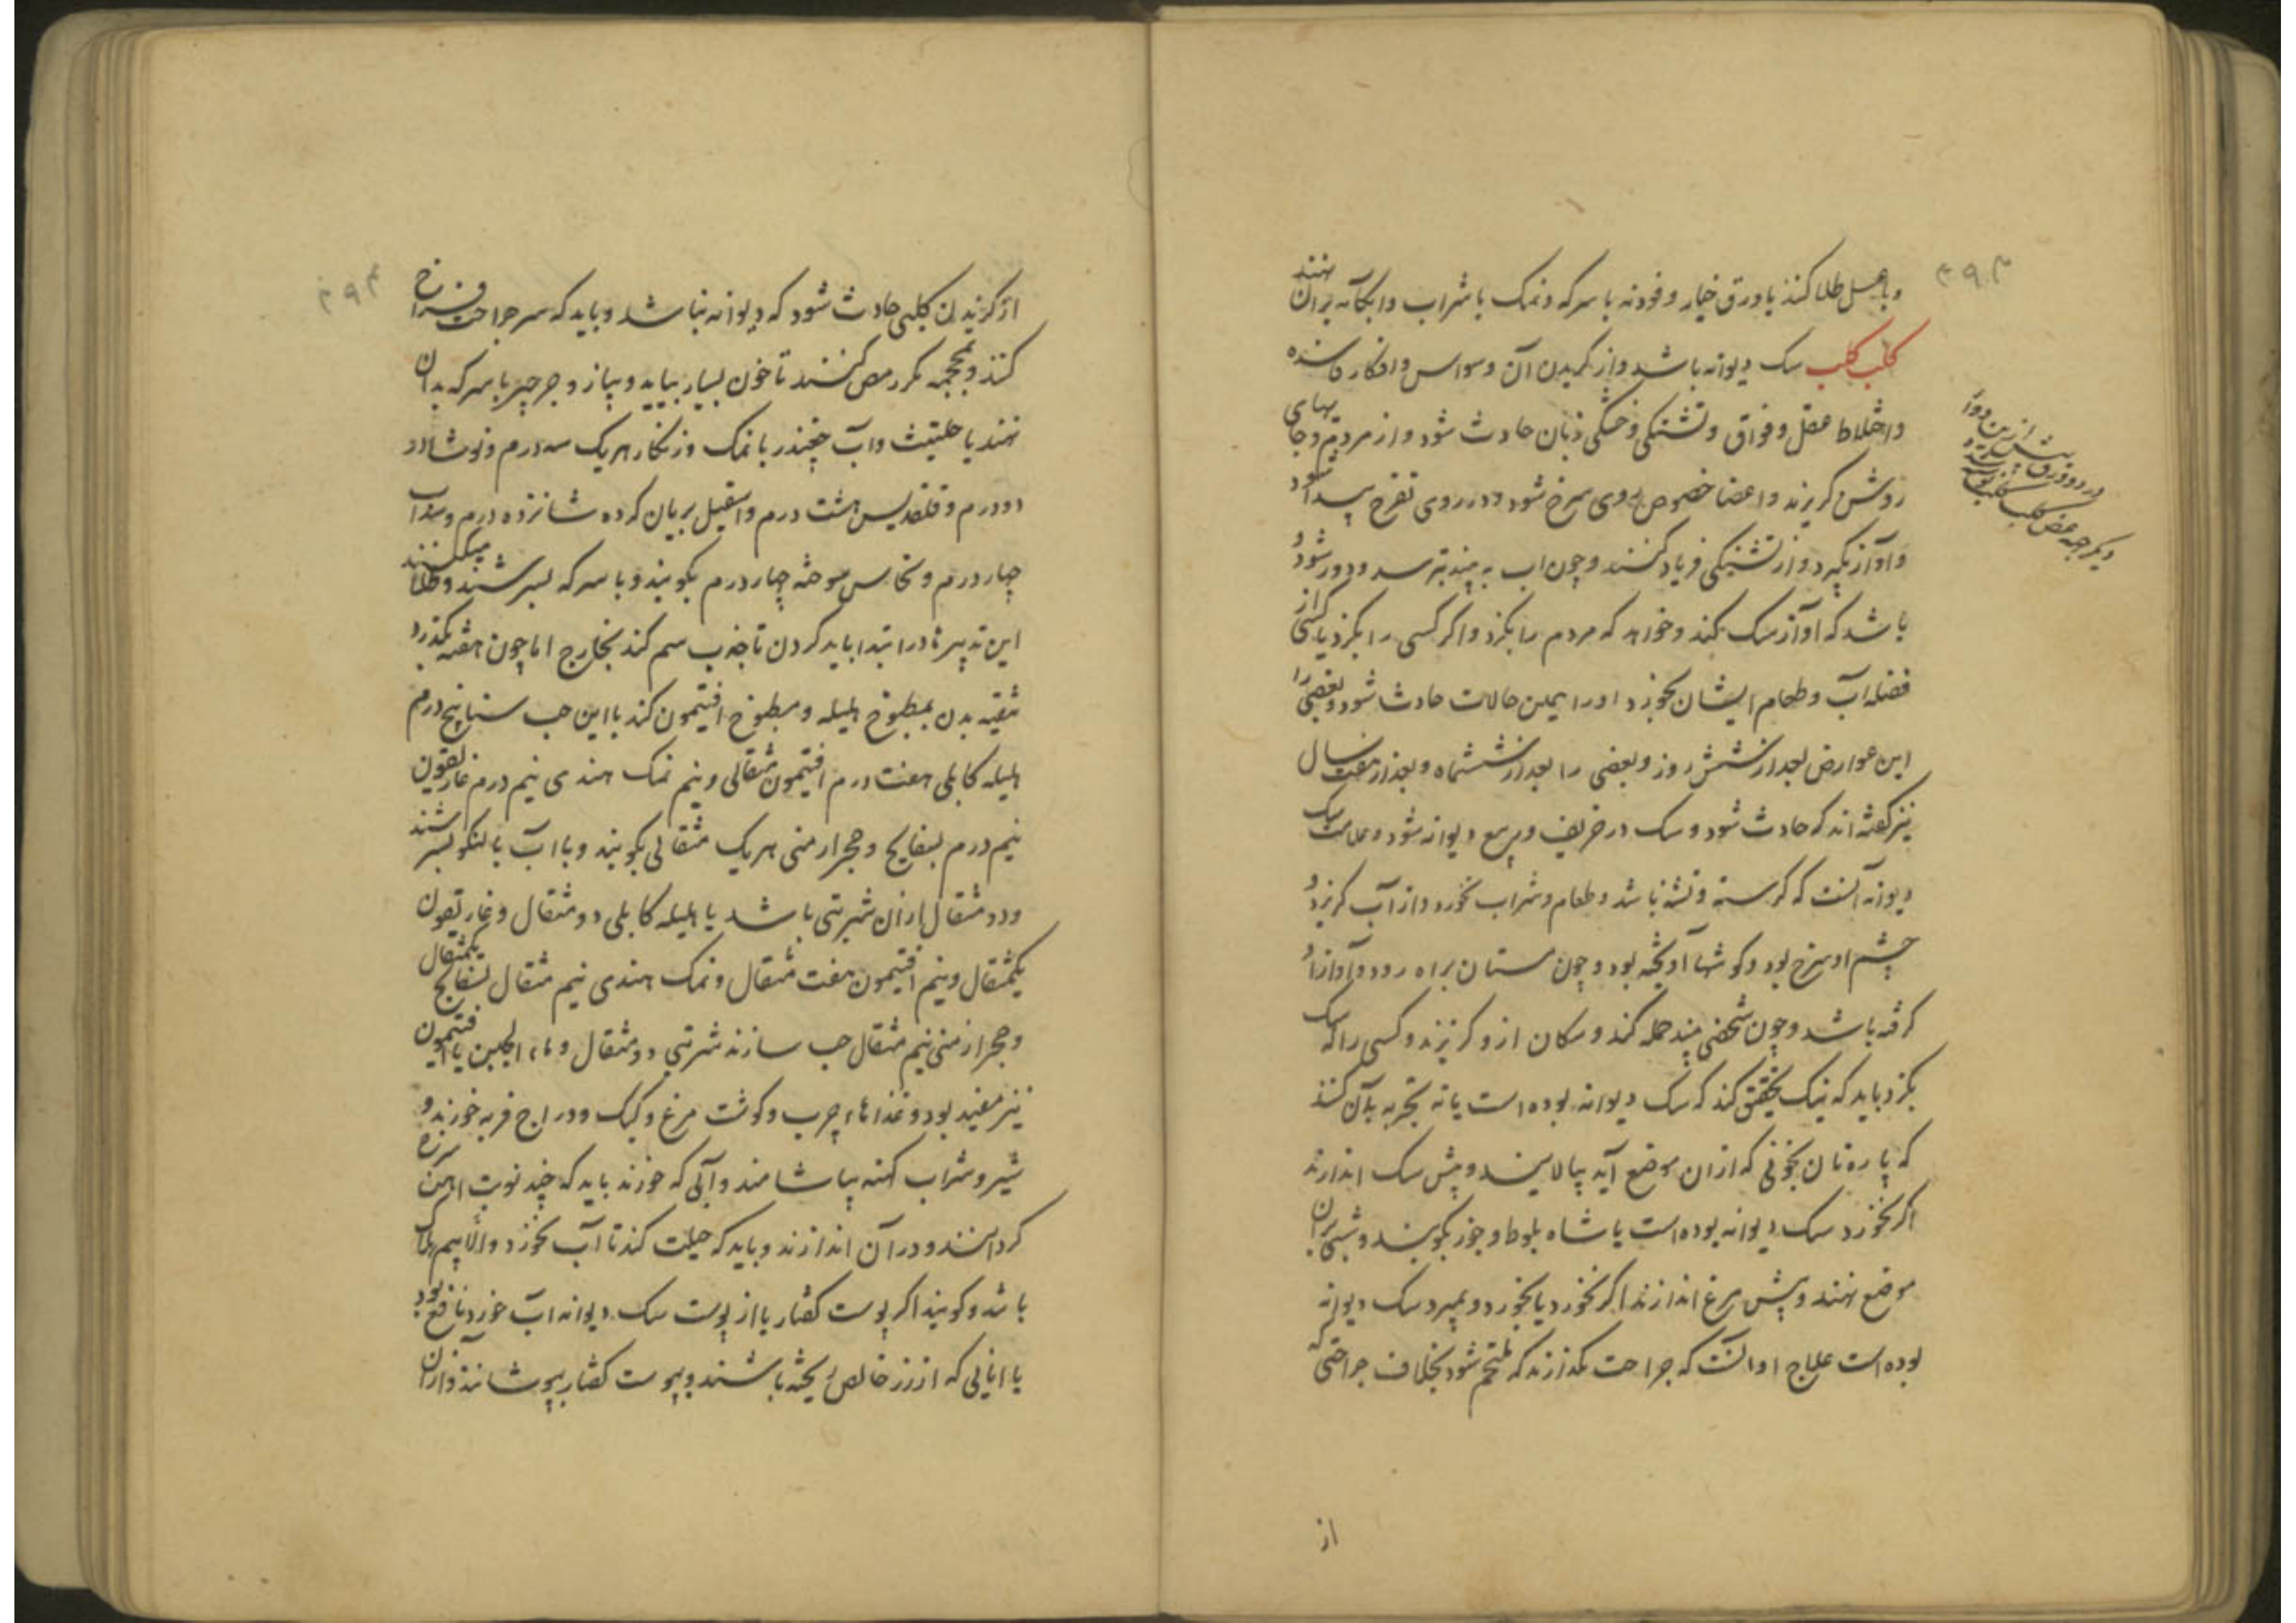 ۳۹۳
و با عسل طلا کنند یا ورق خیار و فودنه با سرکه و نمک با شراب و ابکامه بران نهند
کلب کلب سک دیوانه باشد و از کزیدن آن وسواس و افکار فاسده
و اختلاط عقل و فواق و تشنکی و خشکی زبان حادث شود و از مردم و جایهای
روشن کریزند و اعضا خصوص روی سرخ شود و در روی تقرح پیدا شود
و آواز بکیرد و از تشنکی فریاد کنند و چون اب به بیند بترسد و دور شود و
باشد که آواز سک کند و خواهد که مردم را بکزد و اکر کسی را بکزد یا کسی از
فضله آب و طعام ایشان بخورد او را همین حالات حادث شود و بعضی را
این عوارض بعد از شش روز و بعضی را بعد از ششماه و بعد از هفت سال
نیز کفته اند که حادث شود و سک در خریف و ربیع دیوانه شود و علامت سک
دیوانه آنست که کرسنه و تشنه باشد و طعام و شراب نخورد و از آب کریزد و
چشم او سرخ بود و کوشها آویخته بود و چون مستان براه رود و آواز او
کرفته باشد و چون شخصی بیند حمله کند و سکان از و کریزند و کسی را که سک
بکزد باید که نیک تحقیق کند که سک دیوانه بوده است یا نه تجربه بدان کنند
که پاره نان بخونی که از ان موضع آید بیالایند و پیش سک اندازند
اکر نخورد سک دیوانه بوده است یا شاه بلوط و جوز بکوبند و شبی بران
موضع نهند و پیش مرغ اندازند اکر نخورد یا بخورد و بمیرد سک دیوانه
بوده است علاج او انست که جراحت نکذارند که ملتحم شود بخلاف جراحتی که
از
دیکر جهه عض کلب کلب
۳۹۴
از کزیدن کلبی حادث شود که دیوانه نباشد و باید که سر جراحت فراخ
کنند و بمحجمه مکرر مص کنند تا خون بسیار بیاید و پیاز و جرجیر با سرکه بدان
نهند یا حلتیت و آب چغندر با نمک و زنکار هریک سه درم و نوشادر
دو درم و قلقدیس هشت درم و اسقیل بریان کرده شانزده درم و سداب
چهار درم و نحاس سوخته چهار درم بکوبند و با سرکه بسرشند و طلا میکنند
این تدبیرها در ابتدا باید کردن تا جذب سم کند بخارج اما چون هفته بکذرد
تنقیه بدن بمطبوخ هلیله و مطبوخ افتیمون کند یا این حب سنا پنج درم
هلیله کابلی هفت درم افتیمون مثقالی و نیم نمک هندی نیم درم غاریقون
نیم درم بسفایج و حجر ارمنی هریک مثقالی بکوبند و با آب بالنکو بسرشند
و دو مثقال از ان شربتی باشد یا هلیله کابلی دو مثقال و غاریقون
یکمثقال و نیم افتیمون هفت مثقال و نمک هندی نیم مثقال بسفایج یکمثقال
و حجر ارمنی نیم مثقال حب سازند شربتی دو مثقال و ماء الجبن با افتیمون
نیز مفید بود و غذاهاء چرب و کوشت مرغ و کبک و دراج فربه خورند و
شیر و شراب کهنه بیاشامند و آبی که خورند باید که چند نوبت آهن سرخ
کرده انند و در آن اندازند و باید که حیلت کنند تا آب بخورد و الا بیم هلاک
باشد و کویند اکر پوست کفتار یا از پوست سک دیوانه آب خورد نافع بود
یا انایی که از زر خالص ریخته باشند و بپوست کفتار بپوشانند و از ان